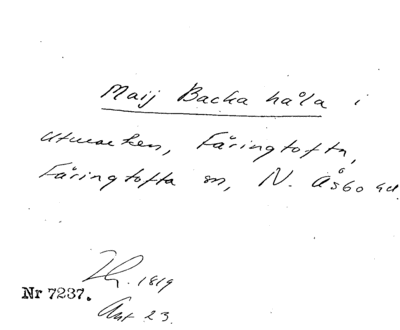 Maij Backa håla i
utmarken, Färingtofta,
Färingtofta sn, N. Åsbo hd.
1819
Nr 7237.
Ant 23.